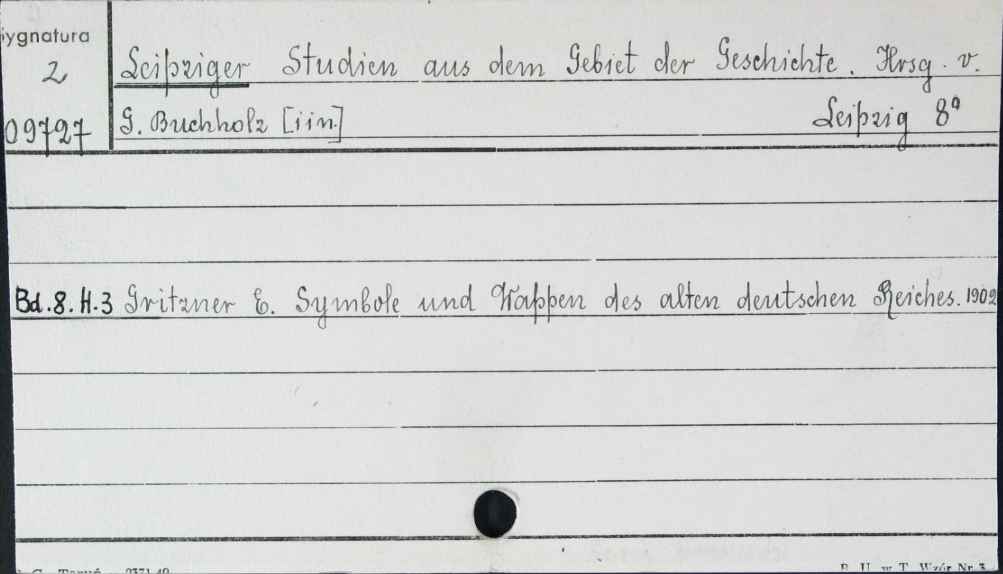 Sygnatura
2
09727
Leipziger Studien aus dem Gebiet der Geschichte. Hrsg. v.
G. Buchholz [iin.] Leipzig 8°
Bd. 8. H. 3 Gritzner E. Symbole und Wappen des alten deutschen Reiches. 1902
Wzór Nr 3